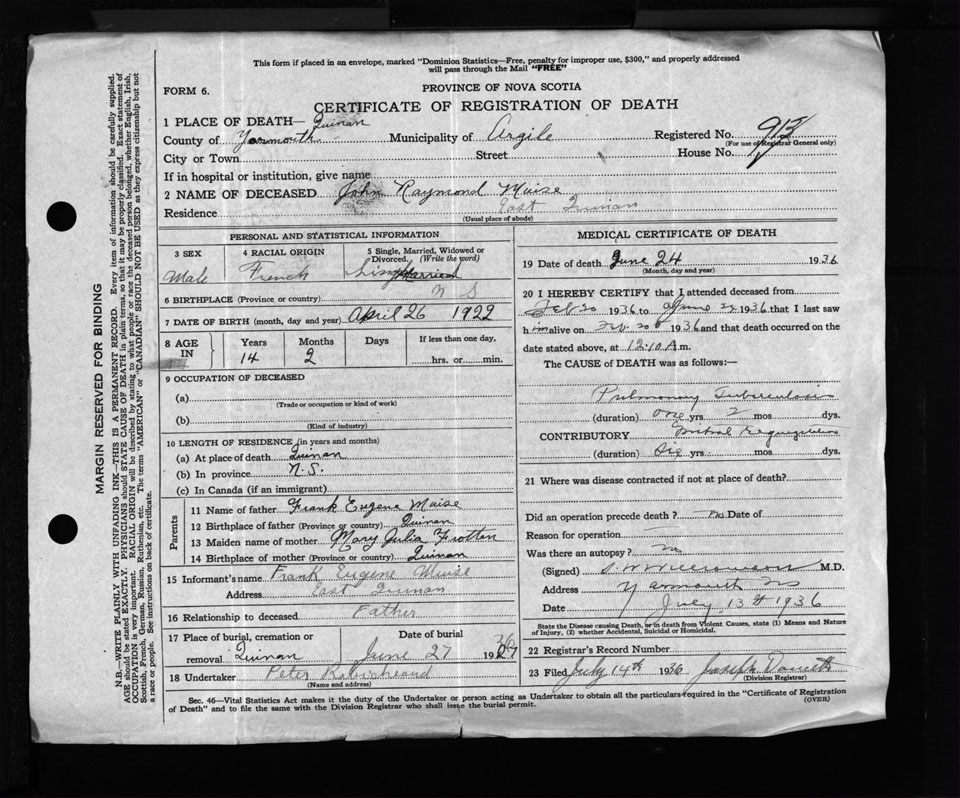 This form if placed in an envelope, marked "Dominion Statistics—Free, penalty for improper use, $300," and properly addressed
will pass through the Mail "FREE"
FORM 6.
PROVINCE OF NOVA SCOTIA
CERTIFICATE OF REGISTRATION OF DEATH
1 PLACE OF DEATH— Quinan
County of Yarmouth Municipality of Argile Registered No. 913
(For use of Registrar General only)
City or Town Street House No.
If in hospital or institution, give name
2 NAME OF DECEASED John Raymond Muise
Residence East Quinan
(Usual place of abode)
PERSONAL AND STATISTICAL INFORMATION
3 SEX 4 RACIAL ORIGIN 5 Single, Married, Widowed or Divorced. (Write the word)
Male French Single Married
6 BIRTHPLACE (Province or country) N S
7 DATE OF BIRTH (month, day and year) April 26 1922
8 AGE IN Years Months Days If less than one day,
14 2 hrs. or min.
9 OCCUPATION OF DECEASED
(a)
(Trade or occupation or kind of work)
(b)
(Kind of industry)
10 LENGTH OF RESIDENCE (in years and months)
(a) At place of death Quinan
(b) In province N.S.
(c) In Canada (if an immigrant)
Parents
11 Name of father Frank Eugene Muise
12 Birthplace of father (Province or country) Quinan
13 Maiden name of mother Mary Julia Frotten
14 Birthplace of mother (Province or country) Quinan
15 Informant's name Frank Eugene Muise
Address East Quinan
16 Relationship to deceased Father
17 Place of burial, cremation or removal Quinan Date of burial June 27 1936
18 Undertaker Peter
(Name and address)
MEDICAL CERTIFICATE OF DEATH
19 Date of death June 24 1936
(Month, day and year)
20 I HEREBY CERTIFY that I attended deceased from
Feb 20 1936 to June 1936 that I last saw
him alive on Feb. 20 1936 and that death occurred on the
date stated above, at 12:10 A m.
The CAUSE OF DEATH was as follows:—
Pulmonary Tuberculosis
(duration) one yrs 2 mos. dys.
CONTRIBUTORY Mitral Regurgitation
(duration) yrs mos. dys.
21 Where was disease contracted if not at place of death?
Did an operation precede death? no Date of
Reason for operation
Was there an autopsy? no
(Signed) S. W. Williamson M.D.
Address Yarmouth NS
Date July 13th 1936
State the Disease causing Death, or in death from Violent Causes, state (1) Means and Nature
of Injury, (2) whether Accidental, Suicidal or Homicidal.
22 Registrar's Record Number
23 Filed July 14th 1936 Joseph
(Division Registrar)
Sec. 46—Vital Statistics Act makes it the duty of the Undertaker or person acting as Undertaker to obtain all the particulars required in the "Certificate of Registration
of Death" and to file the same with the Division Registrar who shall issue the burial permit. (OVER)
MARGIN RESERVED FOR BINDING
N.B.—WRITE PLAINLY WITH UNFADING INK—THIS IS A PERMANENT RECORD. Every item of information should be carefully supplied.
AGE should be stated EXACTLY. PHYSICIANS should STATE CAUSE OF DEATH in plain terms, so that it may be properly classified. Exact statement of
OCCUPATION is very important. RACIAL ORIGIN will be described by stating to what people or race the deceased person belonged, whether English, Irish,
Scottish, French, German, Russian, Ruthenian, etc. The terms "AMERICAN" or "CANADIAN" SHOULD NOT BE USED as they express citizenship but not
a race or people. See instructions on back of certificate.